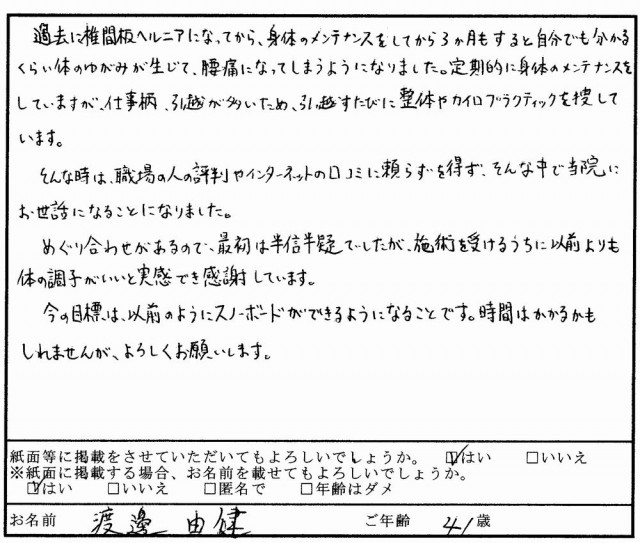 過去に椎間板ヘルニアになってから、身体のメンテナンスをしてから3ヶ月もすると自分でも分かる
くらい体のゆがみが生じて、腰痛になってしまうようになりました。定期的に身体のメンテナンスを
していますが、仕事柄、引越が多いため、引越すたびに整体やカイロプラクティックを捜して
います。
そんな時は、職場の人の評判やインターネットの口コミに頼らずを得ず、そんな中で当院に
お世話になることになりました。
めぐり合わせがあるので、最初は半信半疑でしたが、施術を受けるうちに以前よりも
体の調子がいいと実感でき感謝しています。
今の目標は、以前のようにスノーボードができるようになることです。時間はかかるかも
しれませんが、よろしくお願いします。
紙面等に掲載をさせていただいてもよろしいでしょうか。 ☑はい □いいえ
※紙面に掲載する場合、お名前を載せてもよろしいでしょうか。
☑はい □いいえ □匿名で □年齢はダメ
お名前 渡邊 由健 ご年齢 41歳